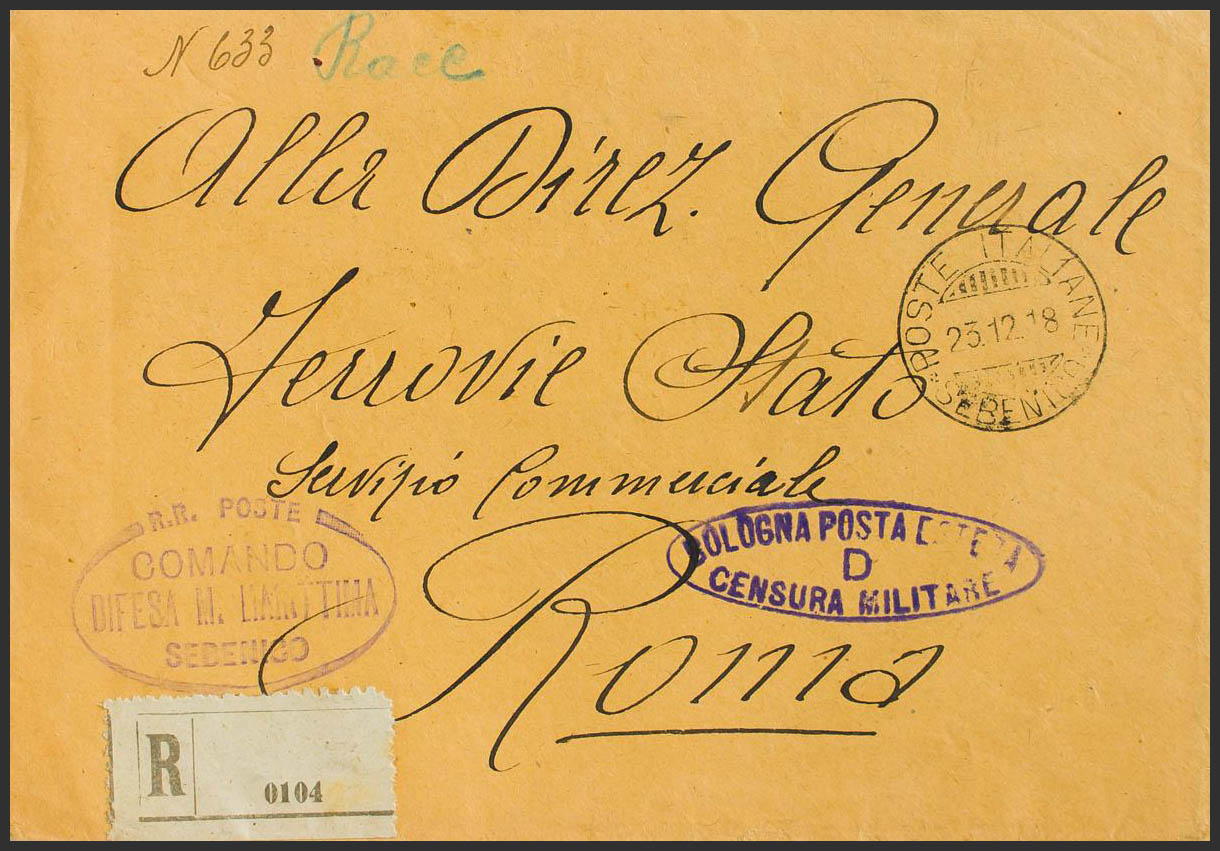 N 633 Racc
Alla Direz. Generale
Ferrovie Stato
Servizio Commerciale
Roma
POSTE ITALIANE
23.12.18
SEBENICO
R.R. POSTE
COMANDO
DIFESA M. MARITTIMA
SEBENICO
BOLOGNA POSTA ESTERA
D
CENSURA MILITARE
R
0104